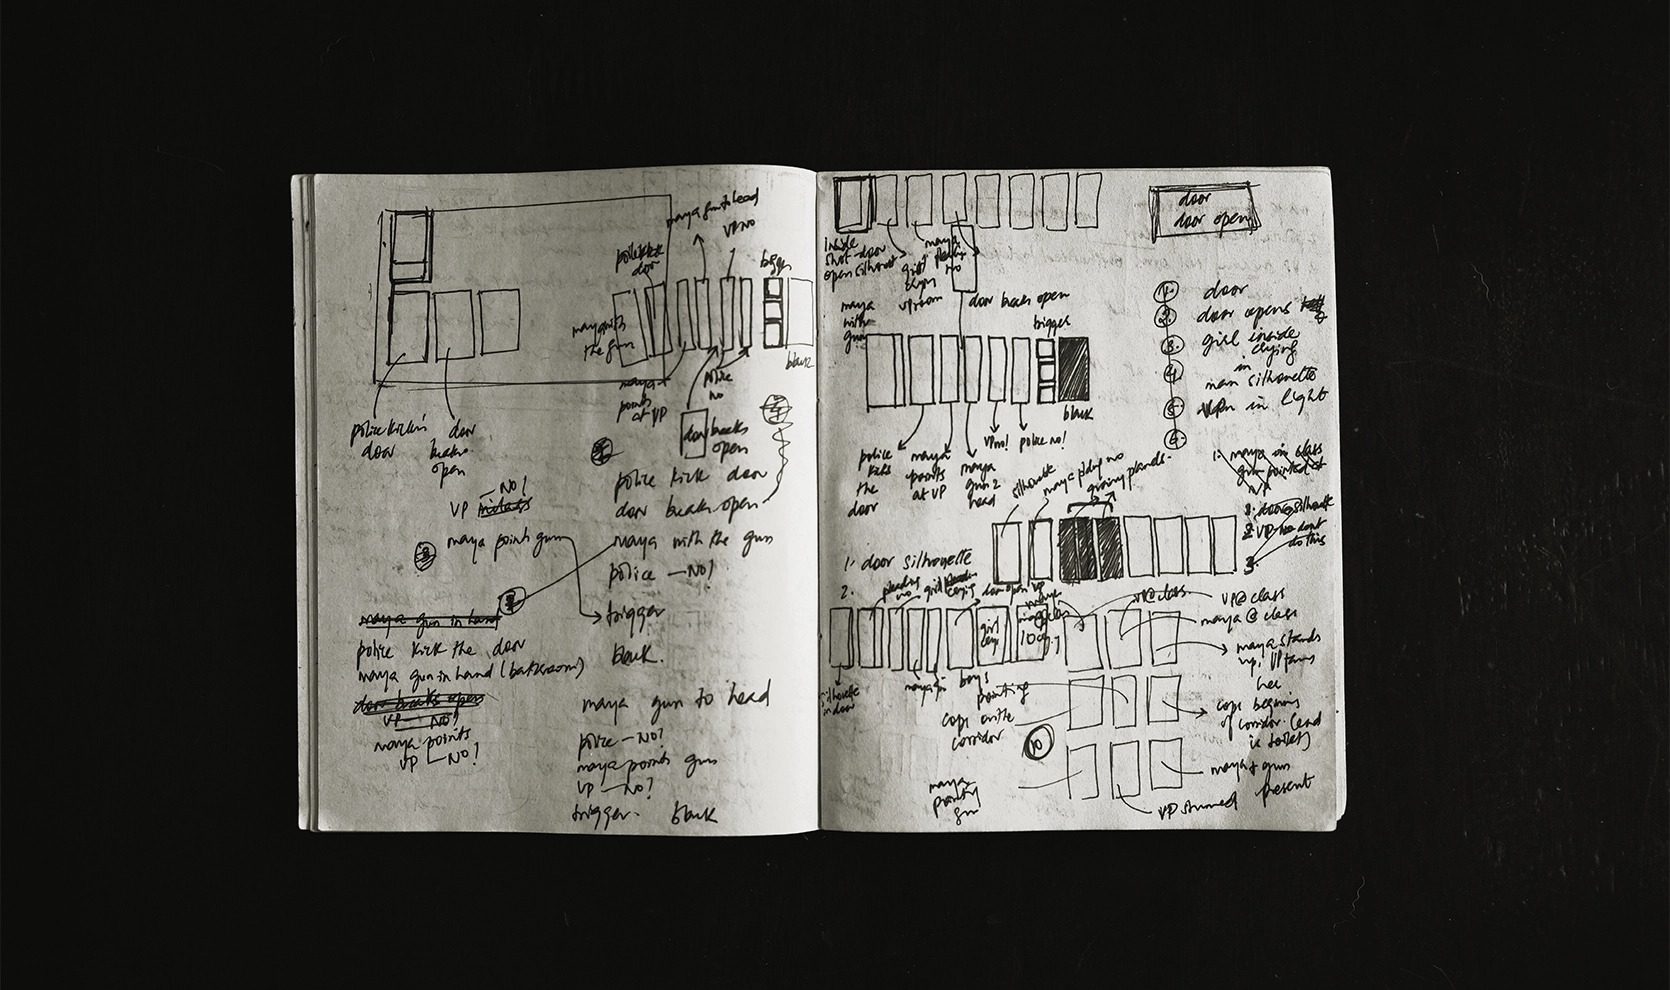 maya gun to head
VP NO
police kick
door
trigger
maya with
the gun
black
maya
points
at VP
police
no
door breaks
open
police kickin'
door
door
breaks
open
police kick door
door breaks open
— NO!
VP
maya points gun
maya with the gun
police — NO!
trigger
black.
maya gun in hand
police kick the door
maya gun in hand (bathroom)
door breaks open
VP — NO!
maya points
VP — NO!
maya gun to head
police — NO!
maya points gun
VP — NO!
trigger. black
door
door open
Inside
shot-door
open silhouet
maya
girl
crying
no
VP room
door breaks open
maya
with
gun
trigger
black
1. door
2. door opens
3. girl inside
crying
4. in
man silhouette
5. in light
6.
police
kicks
the
door
maya
points
at VP
maya
gun 2
head
VP no!
police no!
silhouette
no
1. maya in class
gun pointed at
VP
1. door silhouette
2. VP no dont
do this
3
1. door silhouette
2.
pleading
no
girl
crying
door open VP
girl
cry
VP@class
VP@class
maya @ class
maya stands
up. VP
her
silhouette
in door
boy's
pointing
cops on the
corridor
10
cops beginning
of corridor (end
is toilet)
maya + gun
present
maya
pointing
gun
VP stunned